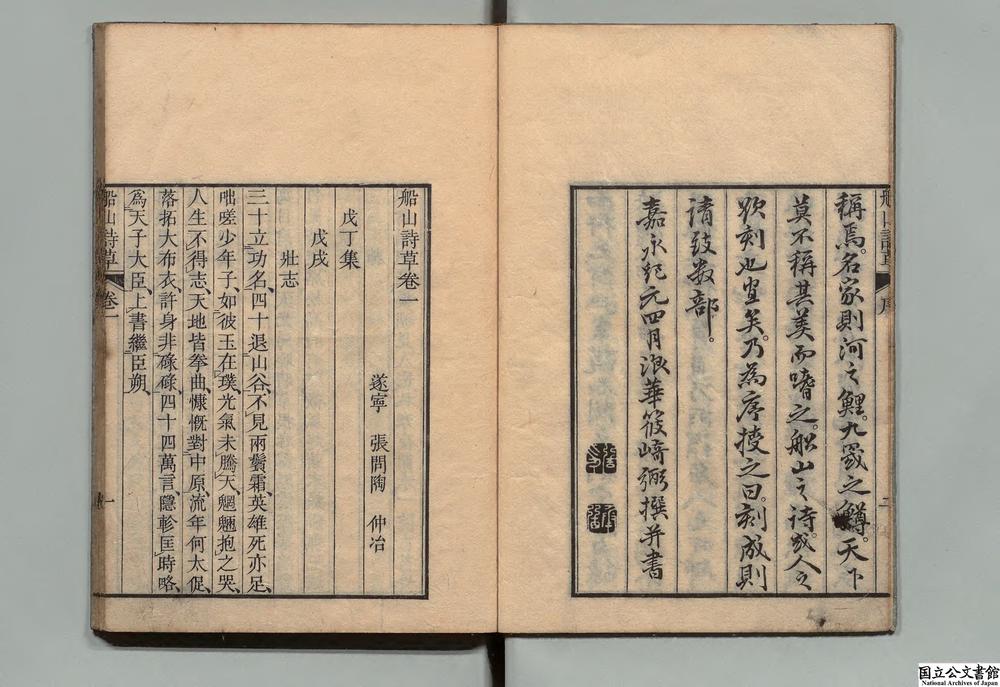 船山詩草 序 二
稱焉。名家則河之鯉。九罭之鱒。天下
莫不稱其美而嗜之。船山之詩。或人之
欲刻也宜矣。乃為序授之曰。刻成則
請致数部。
嘉永紀元四月浪華篠﨑弼撰并書
船山詩草卷一
遂寧 張問陶 仲冶
戊丁集
戊戌
壯志
三十立功名、四十退山谷、不見兩鬢霜、英雄死亦足、
咄嗟少年子、如彼玉在璞、光氣未騰天、魍魎抱之哭、
人生不得志、天地皆拳曲、慷慨對中原、流年何太促、
落拓大布衣、許身非碌碌、四十四萬言、隱軫匡時略、
爲天子大臣、上書繼臣朔、
船山詩草 卷一 一
国立公文書館
National Archives of Japan